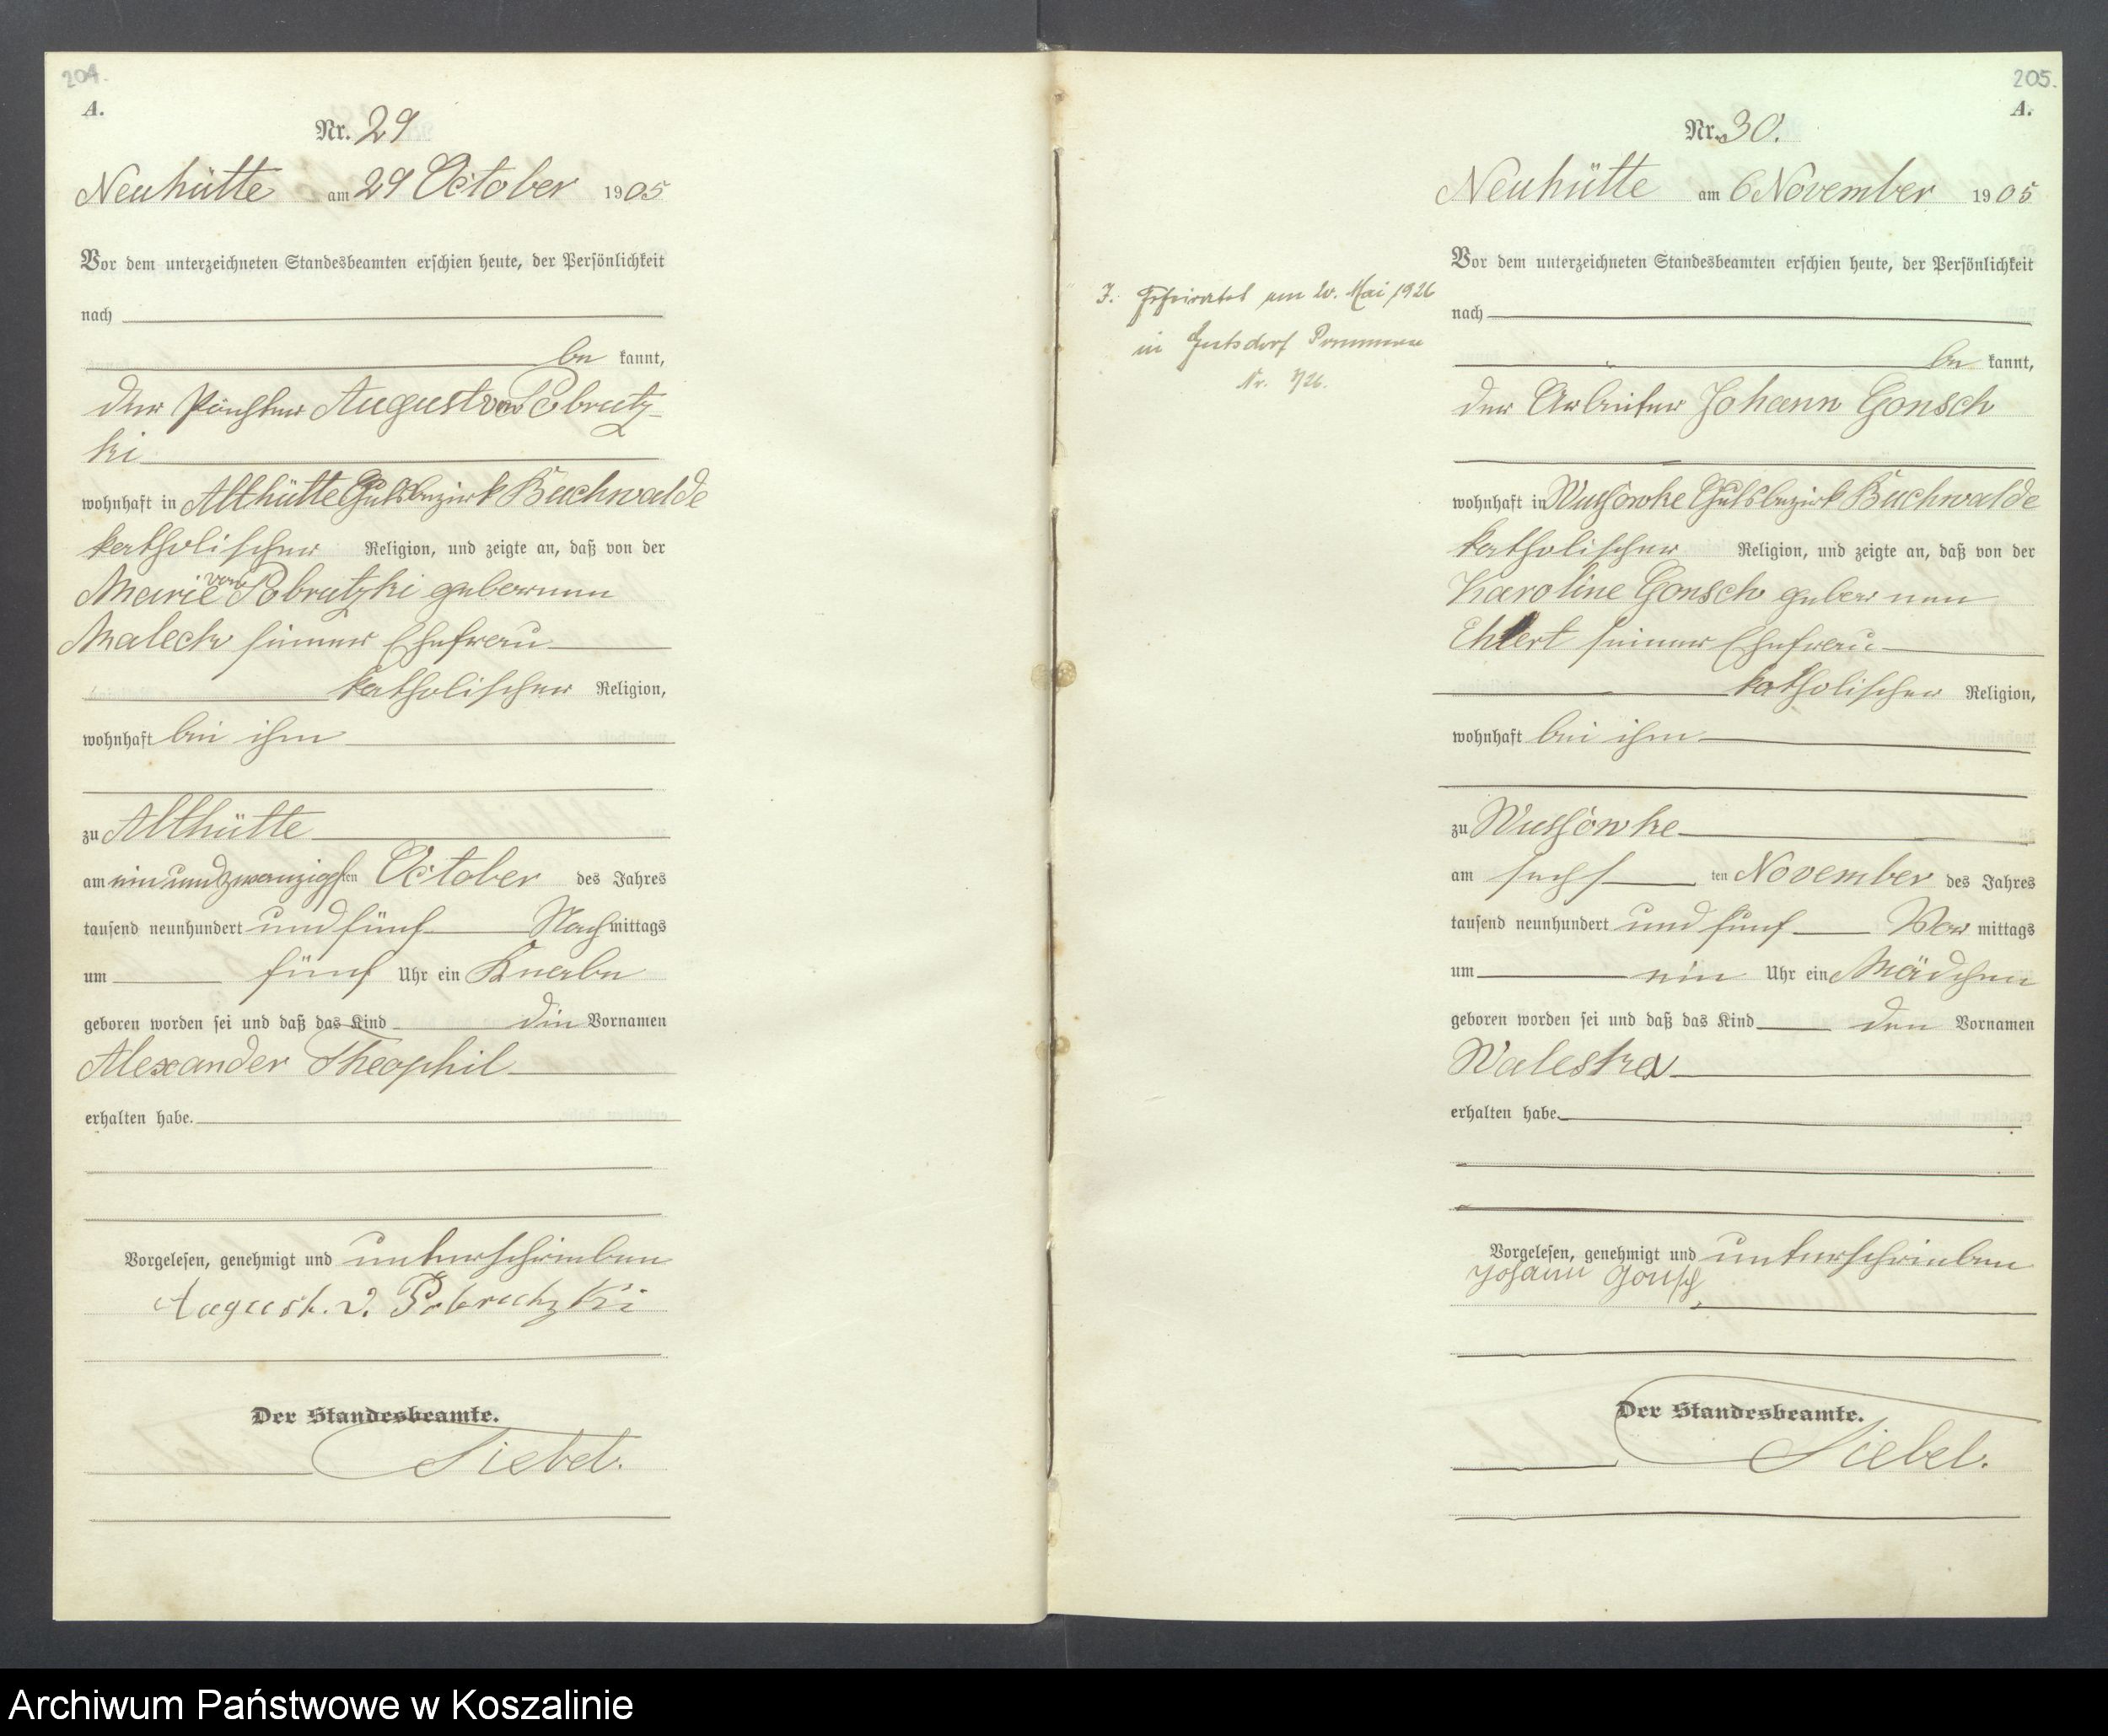 204.
A.
Nr. 29
Neuhütte am 29 October 1905
Vor dem unterzeichneten Standesbeamten erschien heute, der Persönlichkeit
nach
be kannt,
der August von Pobrutz-
ki
wohnhaft in Althütte Gutsbezirk Buchwalde
katholischer Religion, und zeigte an, daß von der
Marie von Pobrutzki geborenen
Maleck seiner Ehefrau
katholischer Religion,
wohnhaft bei ihm
zu Althütte
am einundzwanzigsten October des Jahres
tausend neunhundert und fünf Nachmittags
um fünf Uhr ein Knabe
geboren worden sei und daß das Kind die Vornamen
Alexander Theophil
erhalten habe.
Vorgelesen, genehmigt und unterschrieben
August. v. Pobrutzki
Der Standesbeamte.
Siebel.
205.
A.
Nr. 30.
Neuhütte am 6 November 1905
Vor dem unterzeichneten Standesbeamten erschien heute, der Persönlichkeit
nach
be kannt,
der Arbeiter Johann Gonsch
wohnhaft in Wussowke Gutsbezirk Buchwalde
katholischer Religion, und zeigte an, daß von der
Karoline Gonsch geborenen
Ehlert seiner Ehefrau
katholischer Religion,
wohnhaft bei ihm
zu Wussowke
am sechs ten November des Jahres
tausend neunhundert und fünf Vor mittags
um ein Uhr ein Mädchen
geboren worden sei und daß das Kind den Vornamen
Waleska
erhalten habe.
Vorgelesen, genehmigt und unterschrieben
Johann Gonsch
Der Standesbeamte.
Siebel.
am 20. Mai 1926
in Pommern
Nr. 7/26.
Archiwum Państwowe w Koszalinie